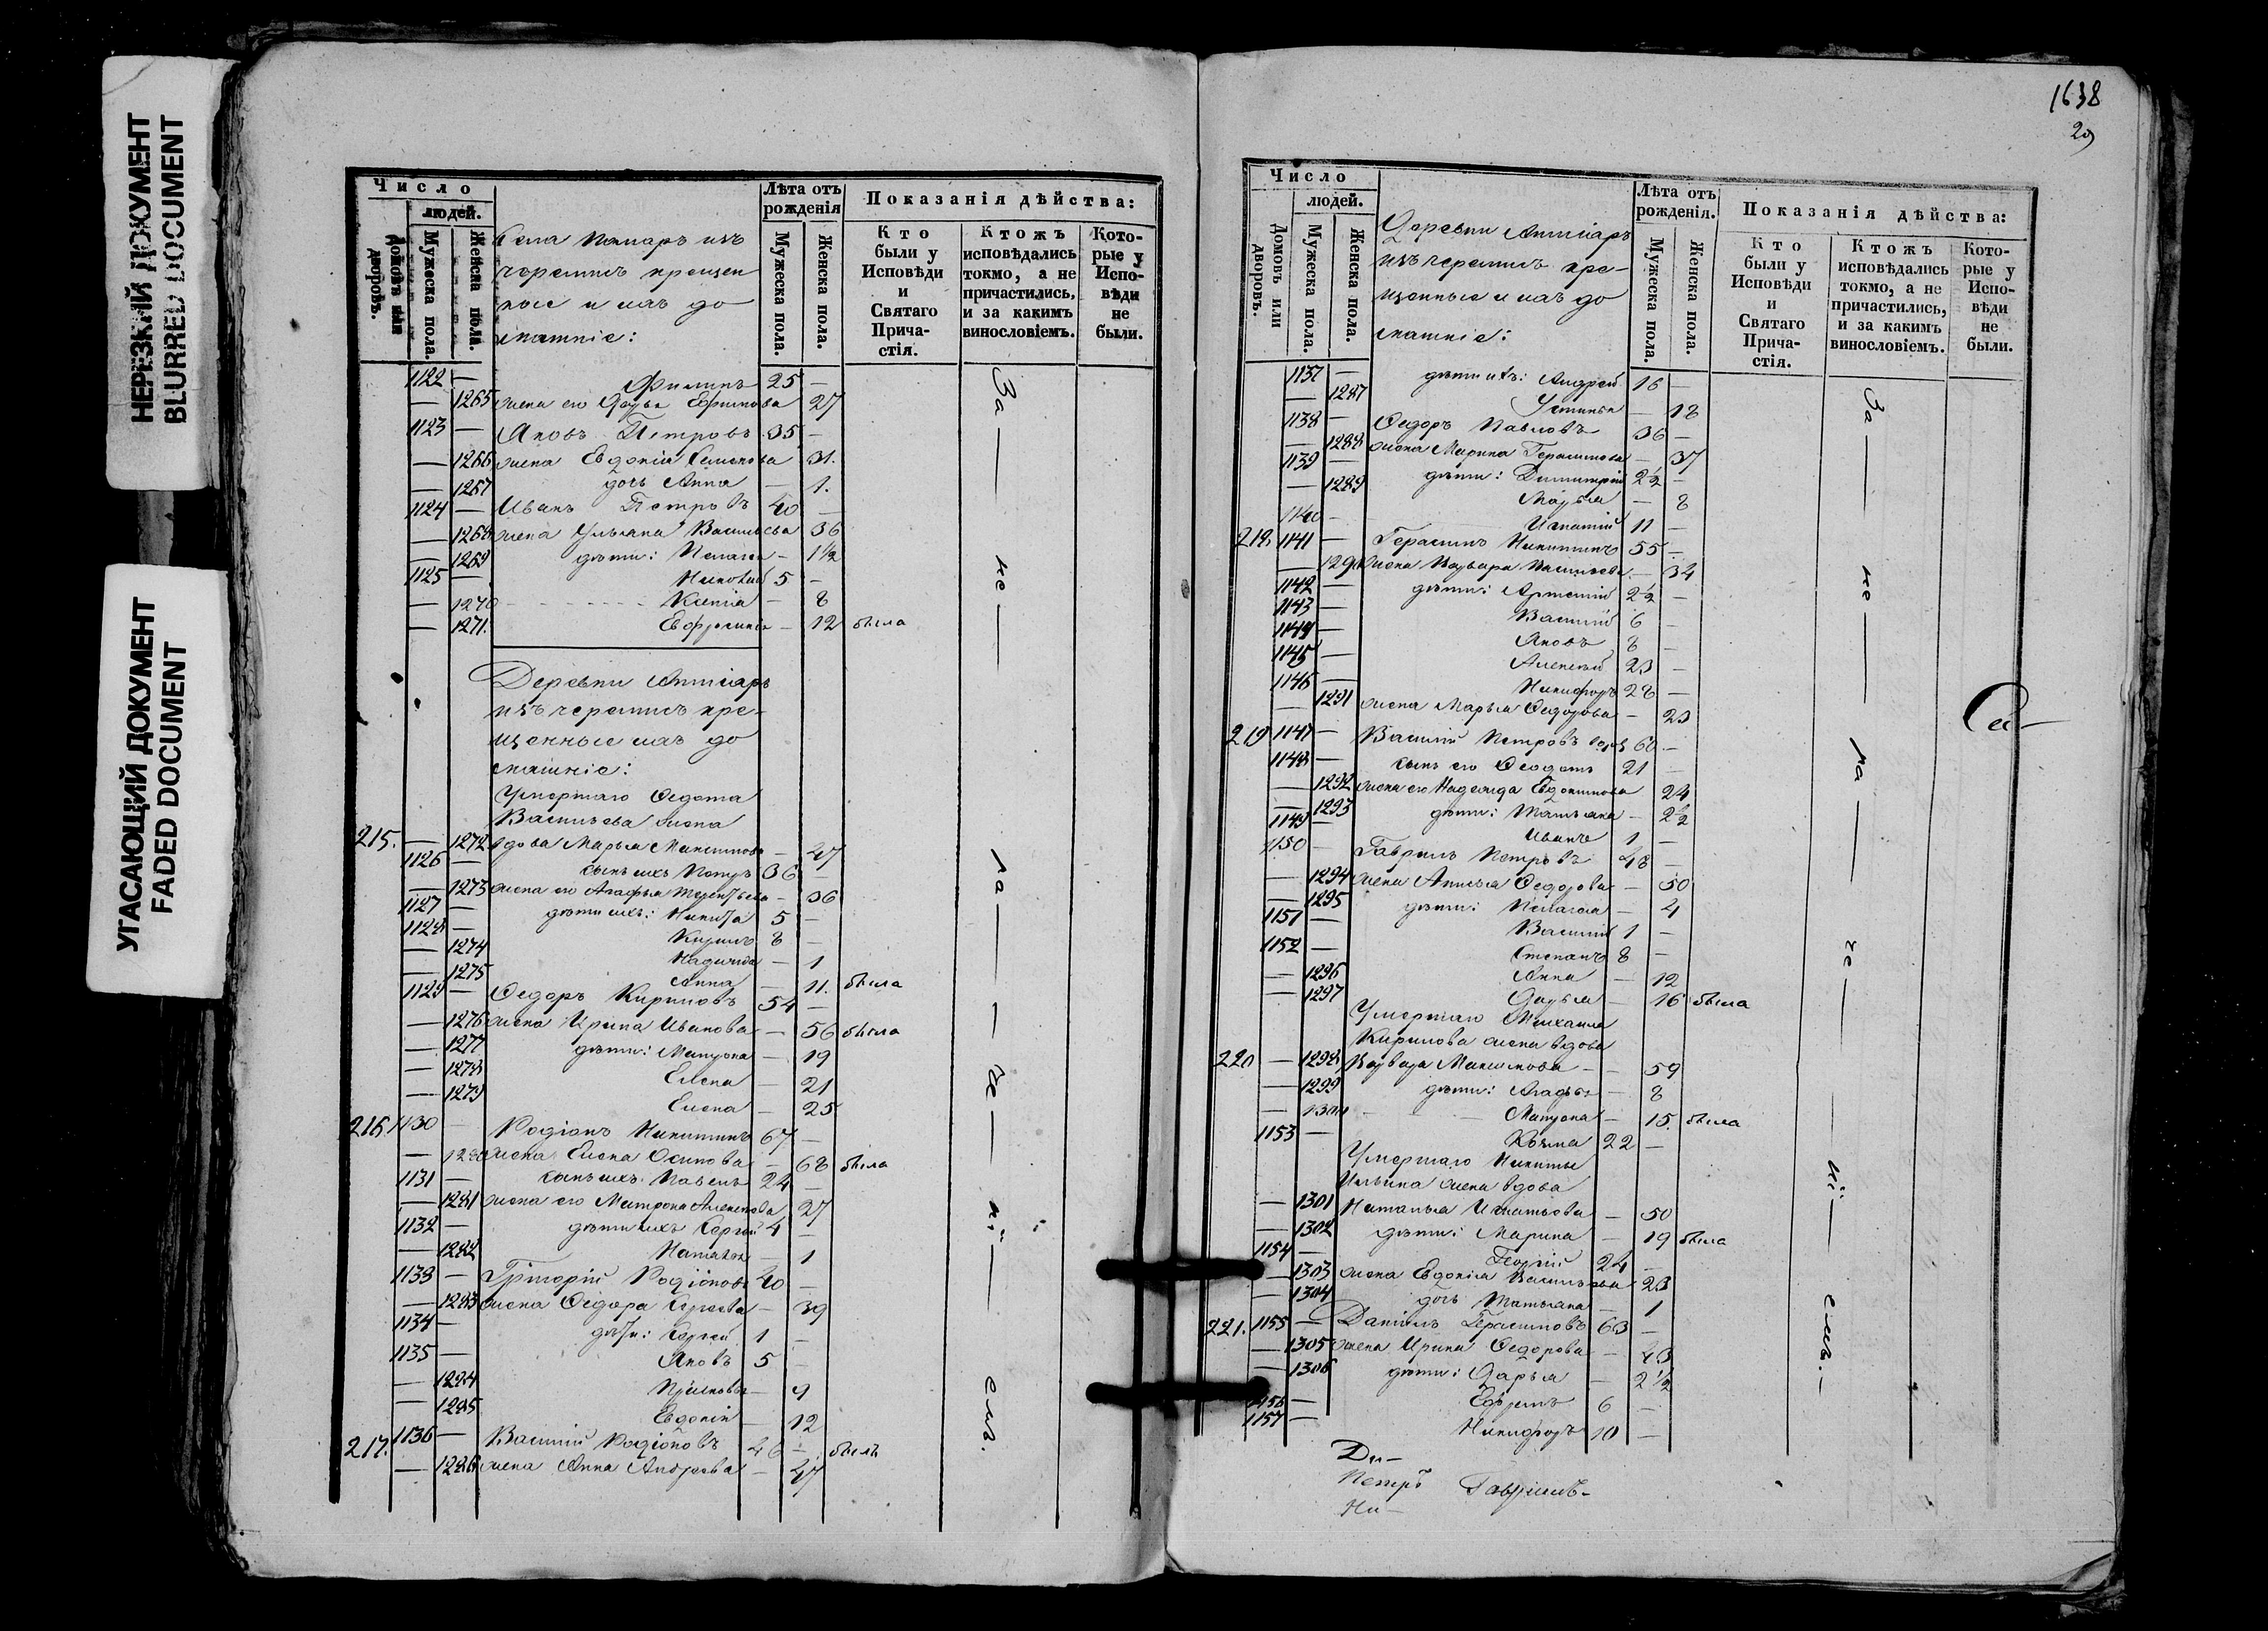 НЕРЕЗКИЙ ДОКУМЕНТ
BLURRED DOCUMENT
УГАСАЮЩИЙ ДОКУМЕНТ
FADED DOCUMENT
Число
людей.
Домовъ или дворовъ.
Мужеска пола.
Женска пола.
изъ
черемисъ крещен
ные и ихъ до
машніе:
Лѣта отъ рожденія
Мужеска пола.
Женска пола.
Показанія дѣйства:
Кто были у Исповѣди и Святаго Прича-стія.
Ктожъ исповѣдались токмо, а не причастились, и за какимъ винословіемъ.
Кото-рые у Испо-вѣди не были.
1122 — Филипъ 25 —
— 1265 жена его Дарья Ефимова 27
1123 — Яковъ Петровъ 35 —
— 1266 жена Евдокія Семенова 31.
— 1267 дочь Анна — 1.
1124 — Иванъ Петровъ 40 —
— 1268 жена Ульяна Васильева 36
— 1269 дѣти: Пелагея — 1½
1125 — 5 —
— 1270 Ксенія — 8
— 1271. Евфросинія — 12 была
Деревни
изъ черемисъ кре-
щенные ихъ до
машніе:
Умершаго Федота
Васильева жена
215. — 1272 вдова Марья Максимова — 47
1126 — сынъ ихъ Петръ 36 —
— 1273 жена его Агафья Терентьева — 36
1127 — дѣти ихъ: Никита 5 —
1128 — Кирилъ 8 —
— 1274 Надежда — 1
— 1275 Анна — 11. была
1129 — Федоръ Кириловъ 54 —
— 1276 жена Ирина Иванова — 56 была
— 1277 дѣти: Матрона — 19
— 1278 Елена — 21
— 1279 Елена — 25
216. 1130 — Родіонъ Никитинъ 67 —
— 1280 жена Елена Осипова — 68 была
1131 — сынъ ихъ Павелъ 24 —
— 1281 жена его Матрона Алексеева 27
1132 — дѣти ихъ Сергѣй 4 —
— 1282 Наталья — 1
1133 — Григорій Родіоновъ 40 —
— 1283 жена Федора Сергеева — 39
1134 — дѣти: Сергѣй 1 —
1135 — Яковъ 5 —
— 1284 — 9
— 1285 Евдокія — 12
217. 1136 — Василій Родіоновъ 46 — былъ
— 1286 жена Анна Андреева — 47
За — не — ма — ло — лѣ
1638
29
Число
людей.
Домовъ или дворовъ.
Мужеска пола.
Женска пола.
Деревни
изъ черемисъ кре-
щенные и ихъ до
машніе:
Лѣта отъ рожденія.
Мужеска пола.
Женска пола.
Показанія дѣйства:
Кто были у Исповѣди и Святаго Прича-стія.
Ктожъ исповѣдались токмо, а не причастились, и за какимъ винословіемъ.
Кото-рые у Испо-вѣди не были.
1137 — дѣти ихъ: Андрей 16 —
— 1287 Устинья — 18
1138 — Федоръ Павловъ 36 —
— 1288 жена Марина Герасимова — 37
1139 — дѣти: Димитрій 2½ —
— 1289 Марья — 8
1140 — Игнатій 11 —
218. 1141 — Герасимъ Никитинъ 55 —
— 1290 жена Варвара Васильева — 34
1142 — дѣти: Артемій 2½ —
1143 — Василій 6 —
1144 — Яковъ 8 —
1145 — Алексѣй 23 —
1146 — Никифоръ 28 —
— 1291 жена Марья Федорова — 23
219 1147 — Василій Петровъ вдовъ 60 —
1148 — сынъ его Федотъ 21 —
— 1292 жена его Надежда Евдокимова 24
— 1293 дѣти: Татьяна — 2½
1149 — Иванъ 1 —
1150 — Гаврилъ Петровъ 48 —
— 1294 жена Анисья Федорова — 50
— 1295 дѣти: Пелагея — 4
1151 — Василій 1 —
1152 — Степанъ 8 —
— 1296 Анна — 12
— 1297 Дарья — 16 была
Умершаго Михаила
Кирилова жена вдова
220 — 1298 Варвара Максимова — 59
— 1299 дѣти: Агафья — 8
— 1300 Матрона — 15. была
1153 — Козма 22 —
Умершаго Никиты
Ильина жена вдова
— 1301 Наталья Игнатьева — 50
— 1302 дѣти: Марина — 19 была
1154 — Георгій 24 —
— 1303 жена Евдокія Васильева 23
— 1304 дочь Татьяна — 1
221. 1155 — Даніилъ Герасимовъ 63 —
— 1305 жена Ирина Федорова — 43
— 1306 дѣти: Дарья — 2½
1156 — Ефремъ 6 —
1157 — Никифоръ 10 —
Ди-
Петръ Гавриилъ-